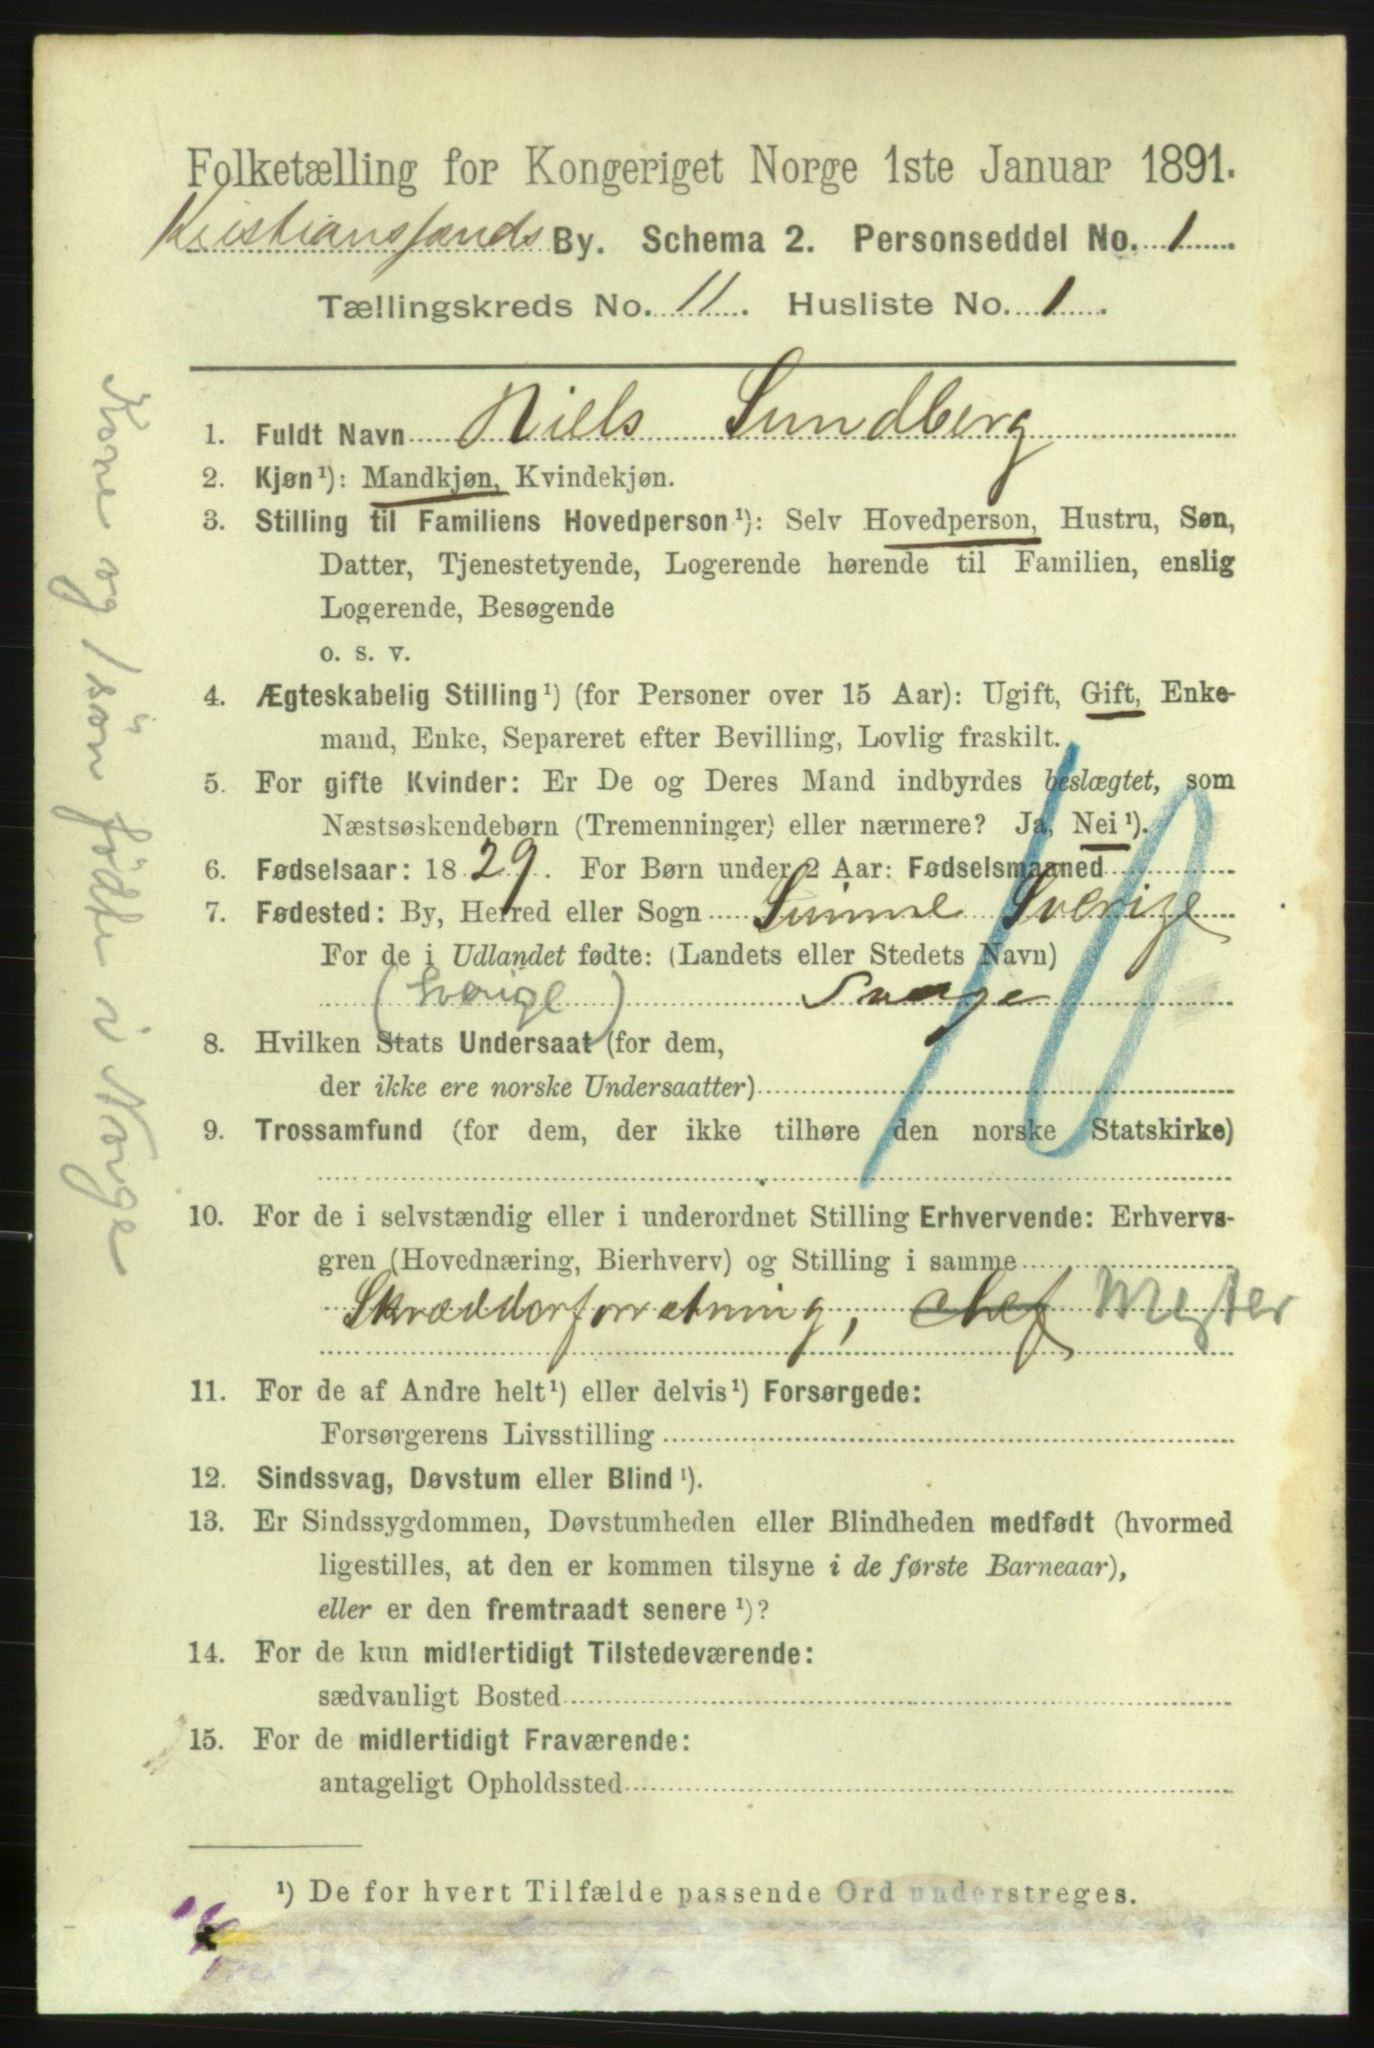 Folketælling for Kongeriget Norge 1ste Januar 1891.
Kristianssands By. Schema 2. Personseddel No. 1
Tællingskreds No. 11. Husliste No. 1.
1. Fuldt Navn Niels Sundberg
2. Kjøn¹): Mandkjøn, Kvindekjøn.
3. Stilling til Familiens Hovedperson¹): Selv Hovedperson, Hustru, Søn,
Datter, Tjenestetyende, Logerende hørende til Familien, enslig
Logerende, Besøgende
o. s. v.
4. Ægteskabelig Stilling¹) (for Personer over 15 Aar): Ugift, Gift, Enke-
mand, Enke, Separeret efter Bevilling, Lovlig fraskilt.
5. For gifte Kvinder: Er De og Deres Mand indbyrdes beslægtet, som
Næstsøskendebørn (Tremenninger) eller nærmere? Ja, Nei¹).
6. Fødselsaar: 1829. For Børn under 2 Aar: Fødselsmaaned
7. Fødested: By, Herred eller Sogn Sunne Sverige
For de i Udlandet fødte: (Landets eller Stedets Navn)
(Sverige)
8. Hvilken Stats Undersaat (for dem,
der ikke ere norske Undersaatter)
9. Trossamfund (for dem, der ikke tilhøre den norske Statskirke)
10. For de i selvstændig eller i underordnet Stilling Erhvervende: Erhvervs-
gren (Hovednæring, Bierhverv) og Stilling i samme
Skrædderforretning, chef Mester
11. For de af Andre helt¹) eller delvis¹) Forsørgede:
Forsørgerens Livsstilling
12. Sindssvag, Døvstum eller Blind¹).
13. Er Sindssygdommen, Døvstumheden eller Blindheden medfødt (hvormed
ligestilles, at den er kommen tilsyne i de første Barneaar),
eller er den fremtraadt senere¹)?
14. For de kun midlertidigt Tilstedeværende:
sædvanligt Bosted
15. For de midlertidigt Fraværende:
antageligt Opholdssted
¹) De for hvert Tilfælde passende Ord understreges.
Kone og 1 sön födte i Norge
10